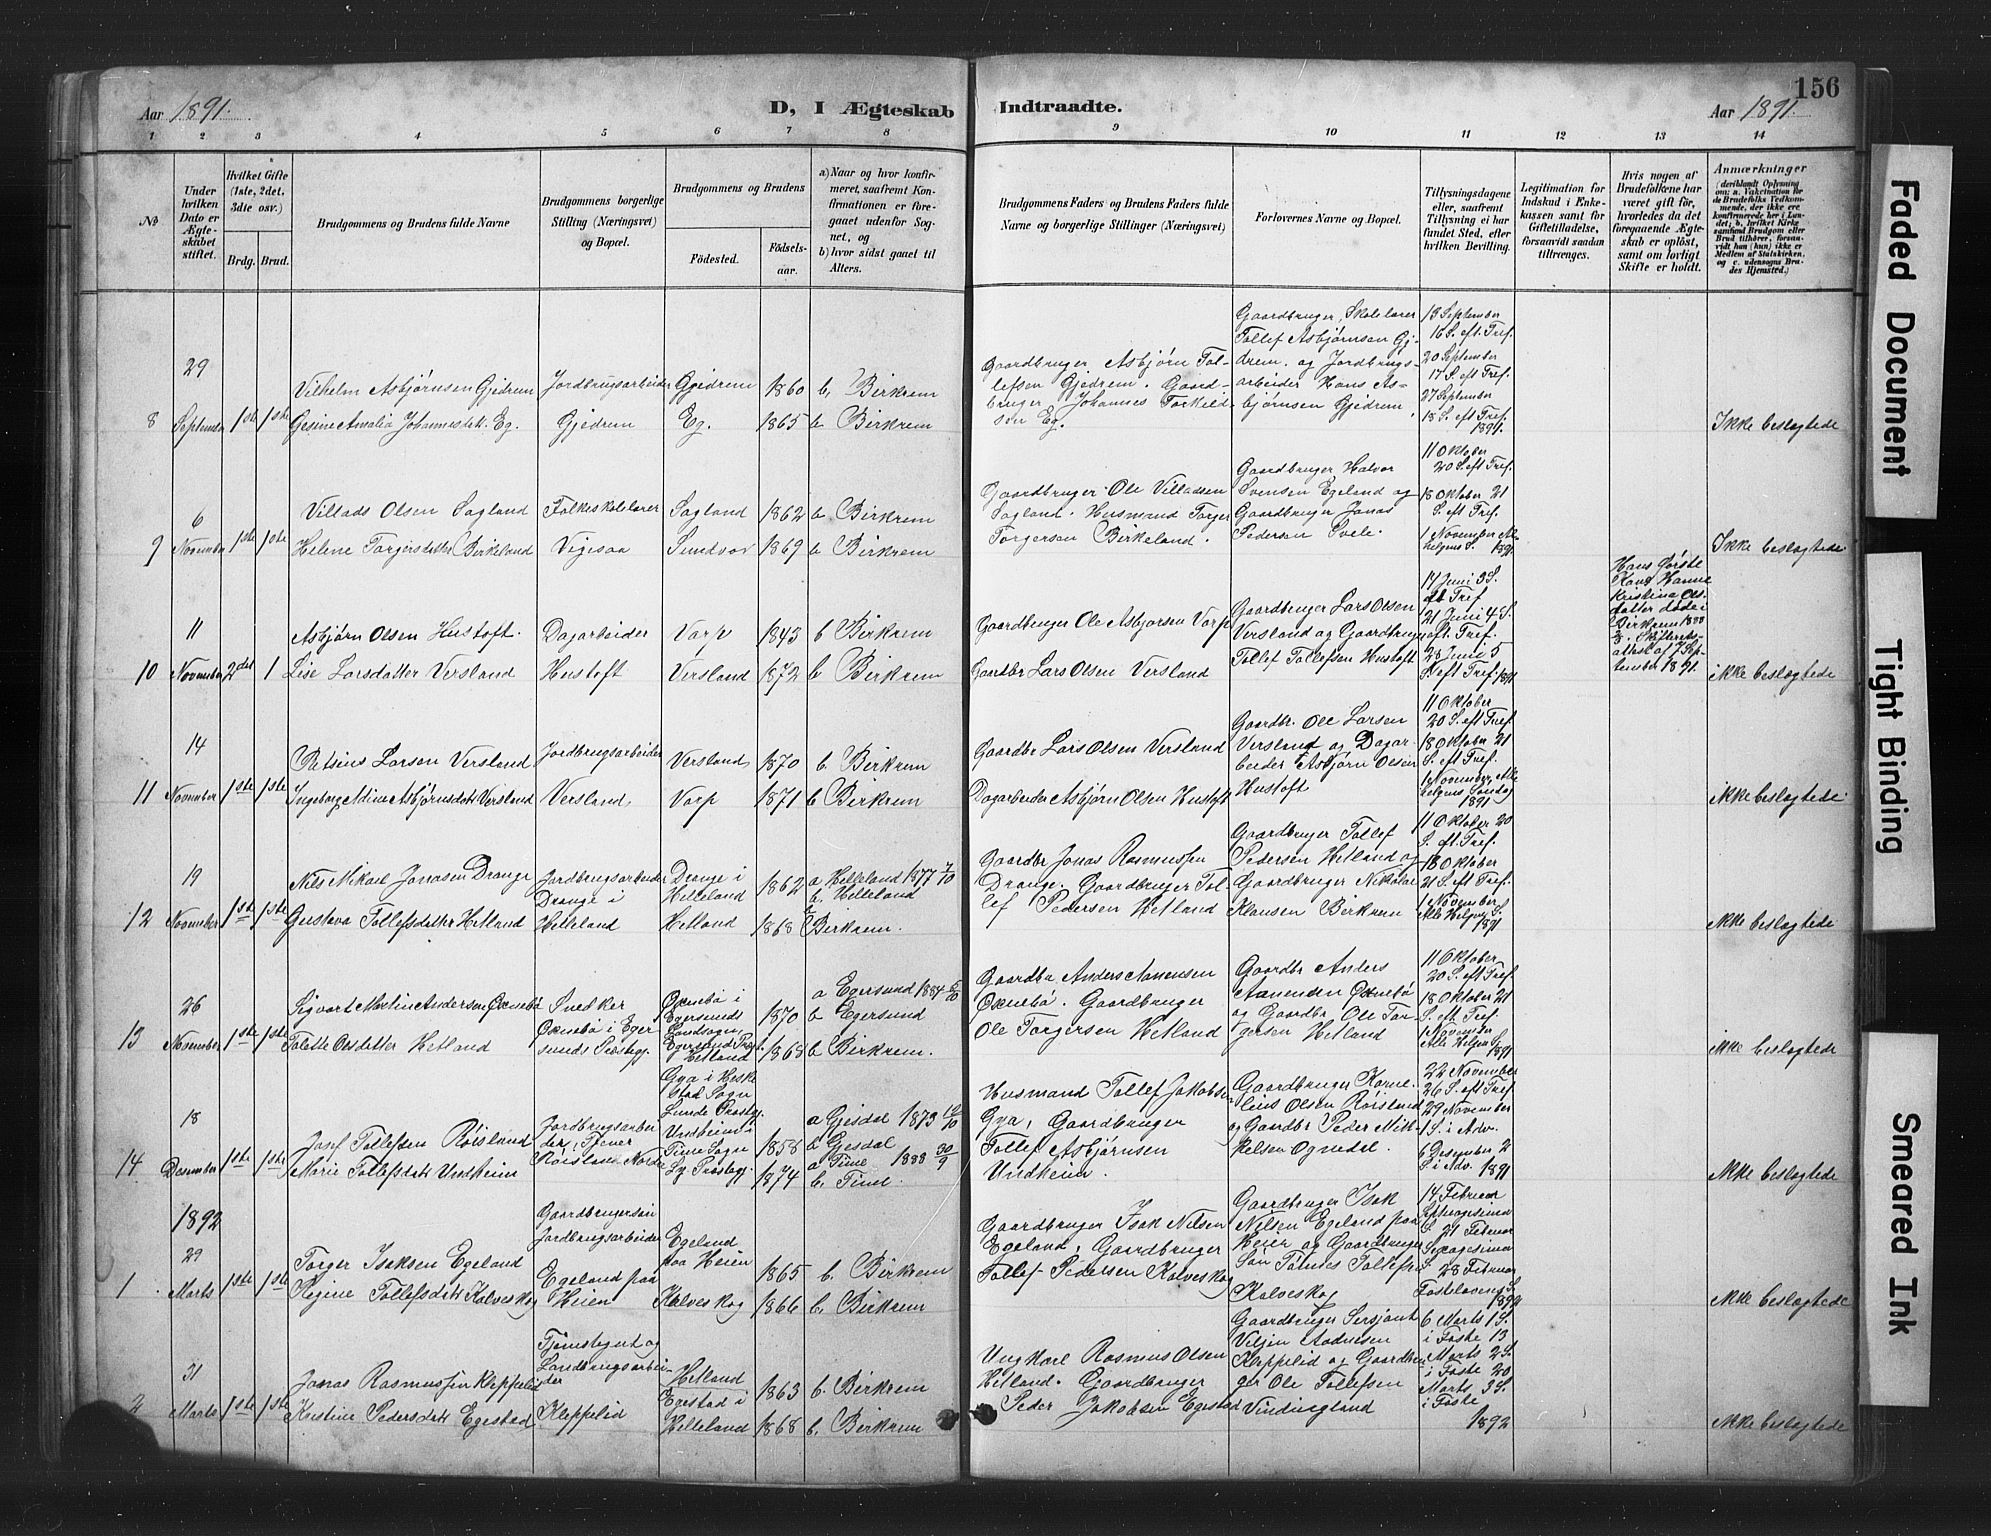 Aar 1891.
D, I Ægteskab Indtraadte.
156
Aar 1891.
1 2 3 4 5 6 7 8 9 10 11 12 13 14
No
Under hvilken Dato er Ægteskabet stiftet.
Hvilket Gifte (1ste, 2det, 3die osv.)
Brdg. Brud.
Brudgommens og Brudens fulde Navne
Brudgommens borgerlige Stilling (Næringsvei) og Bopæl.
Brudgommens og Brudens
Födested.
Födselsaar.
a) Naar og hvor konfirmeret, saafremt Konfirmationen er foregaaet udenfor Sognet, og
b) hvor sidst gaaet til Alters.
Brudgommens Faders og Brudens Faders fulde Navne og borgerlige Stillinger (Næringsvei)
Forlovernes Navne og Bopæl.
Tillysningsdagene eller, saafremt Tillysning ei har fundet Sted, efter hvilken Bevilling.
Legitimation for Indskud i Enkekassen samt for Giftetilladelse, forsaavidt saadan tiltrænges.
Hvis nogen af Brudefolkene har været gift för, hvorledes da det foregaaende Ægteskab er oplöst, samt om lovligt Skifte er holdt.
Anmærkninger
(deriblandt Oplysning om: a. Vakcination for de Brudefolks Vedkommende, der ikke ere konfirmerede her i Landet; b. hvilket Kirkesamfund Brudgom eller Brud tilhörer, forsaavidt han (hun) ikke er Medlem af Statskirken, og c. udensogns Brudes Hjemsted.)
8
29 September
1ste 1ste
Vilhelm Asbjørnsen Gjedrem
Gesine Amalia Johannesdatt. Eg.
Jordbrugsarbeider
Gjedrem
Gjedrem 1860 b. Birkrem
Eg. 1865 b Birkrem
Gaardbruger Asbjørn Tollefsen Gjedrem. Gaardbruger Johannes Torkildsen Eg.
Gaardbruger, Skolelærer Tollef Asbjørnsen Gjedrem. og Jordbrugsarbeider Hans Asbjørnsen Gjedrem.
13 September
16 S. eft. Tref.
20 September
17 S. eft Tref.
27 September
18 S. eft Tref. 1891.
Ikke beslægtede
9
6 November
1ste 1ste
Villads Olsen Sagland
Helene Torgersdatter Birkeland
Folkeskolelærer
Vigesaa
Sagland 1862 b Birkrem
Sundvor 1869 b Birkrem
Gaardbruger Ole Villadsen Sagland. Husmand Torger Torgersen Birkeland.
Gaardbruger Halvor Svensen Egeland og Gaardbruger Jonas Pedersen Svele.
11 Oktober
20 S. eft Tref.
18 Oktober 21
S. eft Tref.
1 November Allehelgens S. 1891
Ikke beslægtede.
10
11 November
2det 1
Asbjørn Olsen Hustoft.
Lise Larsdatter Versland
Dagarbeider
Hustoft
Varp 1843 b Birkrem
Versland 1872 b Birkrem
Gaardbruger Ole Asbjørsen Varp
Gaardbr Lars Olsen Versland
Gaardbruger Lars Olsen Versland og Gaardbruger Tollef Tollefsen Hustoft
14 Juni 3 S. eft Tref
21 Juni 4 S. eft. Tref.
28 Juni 5 S. eft Tref. 1891
Hans første Kone Hanne Kristina Olsdatter døde i Birkrem 1888 Skifteretsattest af 7 September 1891.
ikke beslægtede
11
14 November
1ste 1ste
Larsen Versland
Ingeborg Aline Asbjørnsdatt. Versland
Jordbrugsarbeider
Versland
Versland 1870 b. Birkrem
Varp 1871 b Birkrem
Gaardbr Lars Olsen Versland
Dagarbeider Asbjørn Olsen Hustoft
Gaardbr. Ole Larsen Versland og Dagarbeider Asbjørn Olsen Hustoft
11 Oktober
20 S. eft Tref.
18 Oktober 21
S. eft Tref.
1 November, Allehelgens Søndag 1891
ikke beslægtede
12
19 November
1ste 1ste
Nils Mikael Jonasen Drange
Gustava Tollefsdatter Hetland
Jordbrugsarbeider
Drange i Helleland
Drange i Helleland 1862 a Helleland 1877 7/10 b. Helleland
Hetland 1868 b Birkrem.
Gaardbr Jonas Rasmussen Drange. Gaardbruger Tollef Pedersen Hetland
Gaardbruger Tollef Pedersen Hetland og Gaardbruger Nikolai Klausen Birkrem
11 Oktober 20
S. eft. Tref.
18 Oktober
21 S. eft Tref.
1 November
Alle Helgens S. 1891
ikke beslægtede
13
26 November
1ste 1ste
Sigvart Martin Andersen Oxnebø
Tolette Olsdatter Hetland
Snedker
Oxnebø i Egersunds Præstegj.
Oxnebø i Egersunds Landsogn Egersund Præst. 1870 a Egersund 1884 b Egersund
Hetland 1868 b Birkrem.
Gaardbr Anders Aanensen Oxnebø. Gaardbruger Ole Torgersen Hetland
Gaardbr Anders Aanensen Oxnebø og Gaardbr Ole Torgersen Hetland
11 Oktober
20 S. eft Tref.
18 Oktober 21
S. eft Tref.
1 November
Alle Helgens S. 1891
ikke beslægtede
14
18 Desember
1ste 1ste
Josef Tollefsen Røisland
Marie Tollefsdatt. Undheim
Jordbrugsarbeider, Tjener
Røisland
Gya i Heskestad Sogn Lunde Præstegj. 1858 a Gjesdal 1873 b Gjesdal
Undheim i Time Sogn Ly Præstegj. 1874 a Time 1888 30/9 b. Time.
Husmand Tollef Jakobsen Gya, Gaardbruger Tollef Asbjørnsen Undheim.
Gaardbruger Kornelius Olsen Røisland og Gaardbr Peder Mikkelsen Ognedal.
22 November
26 S. eft Tref
29 November
1 S. i Adv.
6 Desember 2
S i Adv. 1891
ikke beslægtede
1892
1
29 Marts
1ste 1ste
Torger Isaksen Egeland
Regine Tollefsdatt. Kalveskog
Gaardbrugersøn Jordbrugsarbeider
Egeland paa Heien
Egeland paa Heien 1865 b. Birkrem
Kalveskog 1866 b. Birkrem
Gaardbruger Isak Nilsen Egeland, Gaardbruger Tollef Pedersen Kalveskog
Gaardbruger Isak Nilsen Egeland paa Heier og Gaardbruger Søn Tønnes Tollefsen Kalveskog
14 Februar
Septuagesima
S. 21 Februar
Sexagesima
S. 28 Februar
Fastelavens S. 1892
ikke beslægtede
2
31 Marts
1ste 1ste
Jonas Rasmussen Kleppelid
Kristine Pedersdatt. Egestad
Tjenstegut og Landbrugsarbeider
Kleppelid
Hetland 1863 b. Birkrem
Egestad i Helleland 1868 b. Birkrem
Ungkarl Rasmus Olsen Hetland. Gaardbruger Peder Jakobsen Egestad
Gaardbruger Sersjant Viljen Aadnesen Kleppelid og Gaardbruger Ole Tollefsen Vindingland
6 Marts 1 S.
i Faste 13
Marts 2 S.
i Faste 20
Marts 3 S.
i Faste
1892
ikke beslægtede
Faded Document
Tight Binding
Smeared Ink